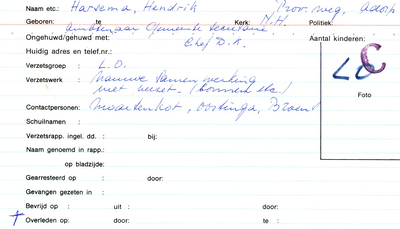 Naam etc.: Harsema, Hendrik Prov. weg, Adorp
Geboren: ,te Kerk: N.H. Politiek:
ambtenaar Gemeente secretarie
Ongehuwd/gehuwd met: Chef D.K. Aantal kinderen:
Huidig adres en telef.nr.:
Verzetsgroep : L.O. LO C
Verzetswerk : nauwe samenwerking
met verzet. (bonnen etc) Foto
Contactpersonen: Oostinga,
Schuilnaam :
Verzetsrapp. ingel. dd. : bij:
Naam genoemd in rapp.:
op bladzijde:
Gearresteerd op : door:
Gevangen gezeten in :
Bevrijd op : uit : door:
Overleden op: door: te :